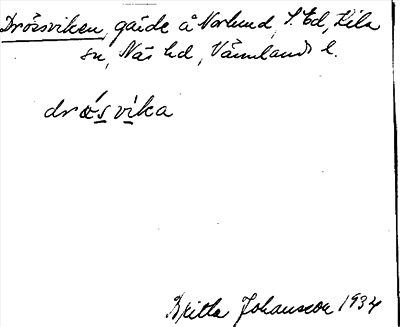 Drösviken, gärde å Norlund, S. Ed, Kila
sn, Näs hd, Värmlands l.
drœ́svìka
Britta Johansson 1934